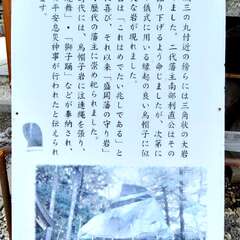 三の丸付近の傍らには三角状の大岩
りました。二代藩主南部利直公はその
り下げるよう命じましたが、次第に
儀式に用いる縁起の良い烏帽子に似
な岩が現れました。
は「これはめでたい兆しである」と
喜び、それ以来「盛岡藩の守り岩」
歴代の藩主に崇め祀られました。
代には、烏帽子岩に注連縄を張り、
舞」・「獅子踊」などが奉納され、
平安息災神事が行われたと伝えられ
す。